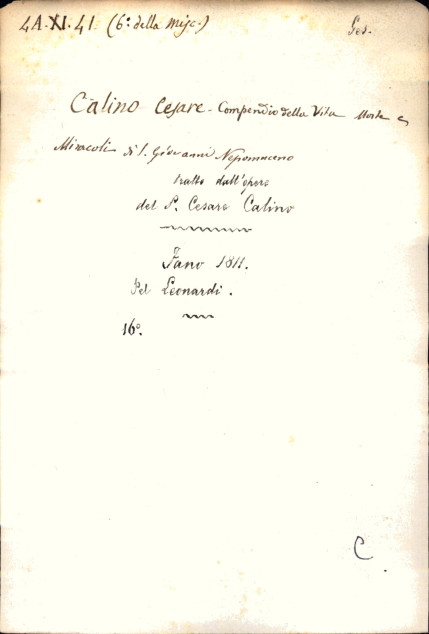 4A.XI.41 (6ª della Misc.) Ges.
Calino Cesare - Compendio della Vita Morte e
Miracoli di S. Giovanni Nepomuceno
tratto dall'opera
del P. Cesare Calino
Fano 1811.
Pel Leonardi.
16º.
C